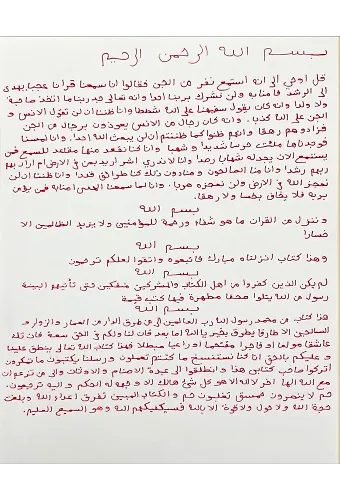 بسم الله الرحمن الرحيم
قل اوحي الي انه استمع نفر من الجن فقالوا انا سمعنا قرأنا عجبا يهدي
الى الرشد فامنا به ولن نشرك بربنا احدا وانه تعالى جد ربنا ما اتخذ صاحبة
ولا ولدا وانه كان يقول سفيهنا على الله شططا وانا ظننا ان لن تقول الانس و
الجن على الله كذبا. وانه كان رجال من الانس يعوذون برجال من الجن
فزادوهم رهقا وانهم ظنوا كما ظننتم ان لن يبعث الله احدا. وانا لمسنا
فوجدناها ملئت حرسا شديدا و شهبا وانا كنا نقعد منها مقاعد للسمع فمن
يستمع الان يجد له شهابا رصدا وانا لا ندري اشر اريد بمن في الارض ام اراد بهم
ربهم رشدا وانا منا الصالحون ومنا دون ذلك كنا طرائق قددا وانا ظننا ان لن
نعجز الله في الارض ولن نعجزه هربا. وانا لما سمعنا الهدى امنا به فمن يؤمن
بربه فلا يخاف بخسا ولا رهقا.
بسم الله
وننزل من القران ما هو شفاء ورحمة للمؤمنين ولا يزيد الظالمين الا
خسارا
بسم الله
وهذا كتاب انزلناه مبارك فاتبعوه واتقوا لعلكم ترحمون
بسم الله
لم يكن الذين كفروا من اهل الكتاب والمشركين منفكين حتى تأتيهم البينة
رسول من الله يتلوا صحفا مطهرة فيها كتب قيمة
بسم الله
هذا كتاب من محمد رسول الله رب العالمين الى من طرق الدار من العمار والزوار و
الصالحين الا طارقا يطرق بخير يا الله اما بعد فان لنا ولكم في الحق سعة فان تك
عاشقا مولعا او فاجرا مقتحما او راعيا مبطلا فهذا كتاب الله تعالى ينطق علينا
و عليكم بالحق انا كنا نستنسخ ما كنتم تعملون و رسلنا يكتبون ما تمكرون
اتركوا صاحب كتابي هذا و انطلقوا الى عبدة الاصنام و الاوثان والى من تزعم ان
مع الله الها اخر لا اله الا هو كل شئ هالك الا وجهه له الحكم و اليه ترجعون.
حم لا ينصرون حمعسق تغلبون حم و الكتاب المبين تفرق اعداء الله وبلغت
حجة الله ولا حول ولا قوة الا بالله فسيكفيكهم الله وهو السميع العليم.